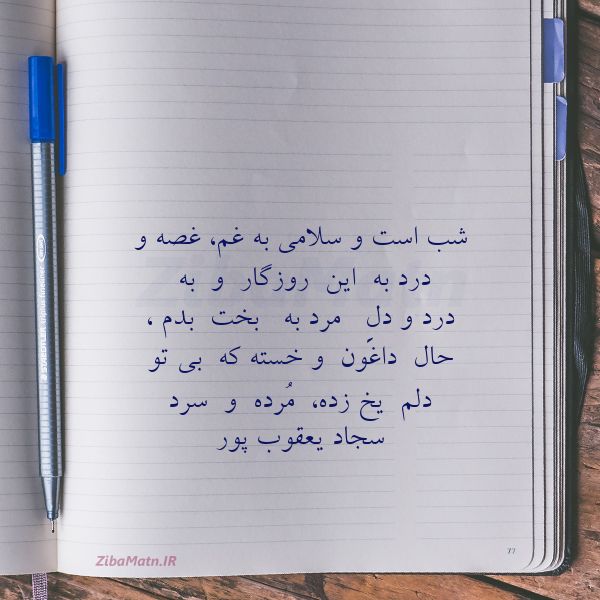 شب است و سلامی به غم، غصه و
درد به این روزگار و به
درد و دلِ مرد به بخت بدم ،
حال داغون و خسته که بی تو
دلم یخ زده، مُرده و سرد
سجاد یعقوب پور
77
ZibaMatn.IR